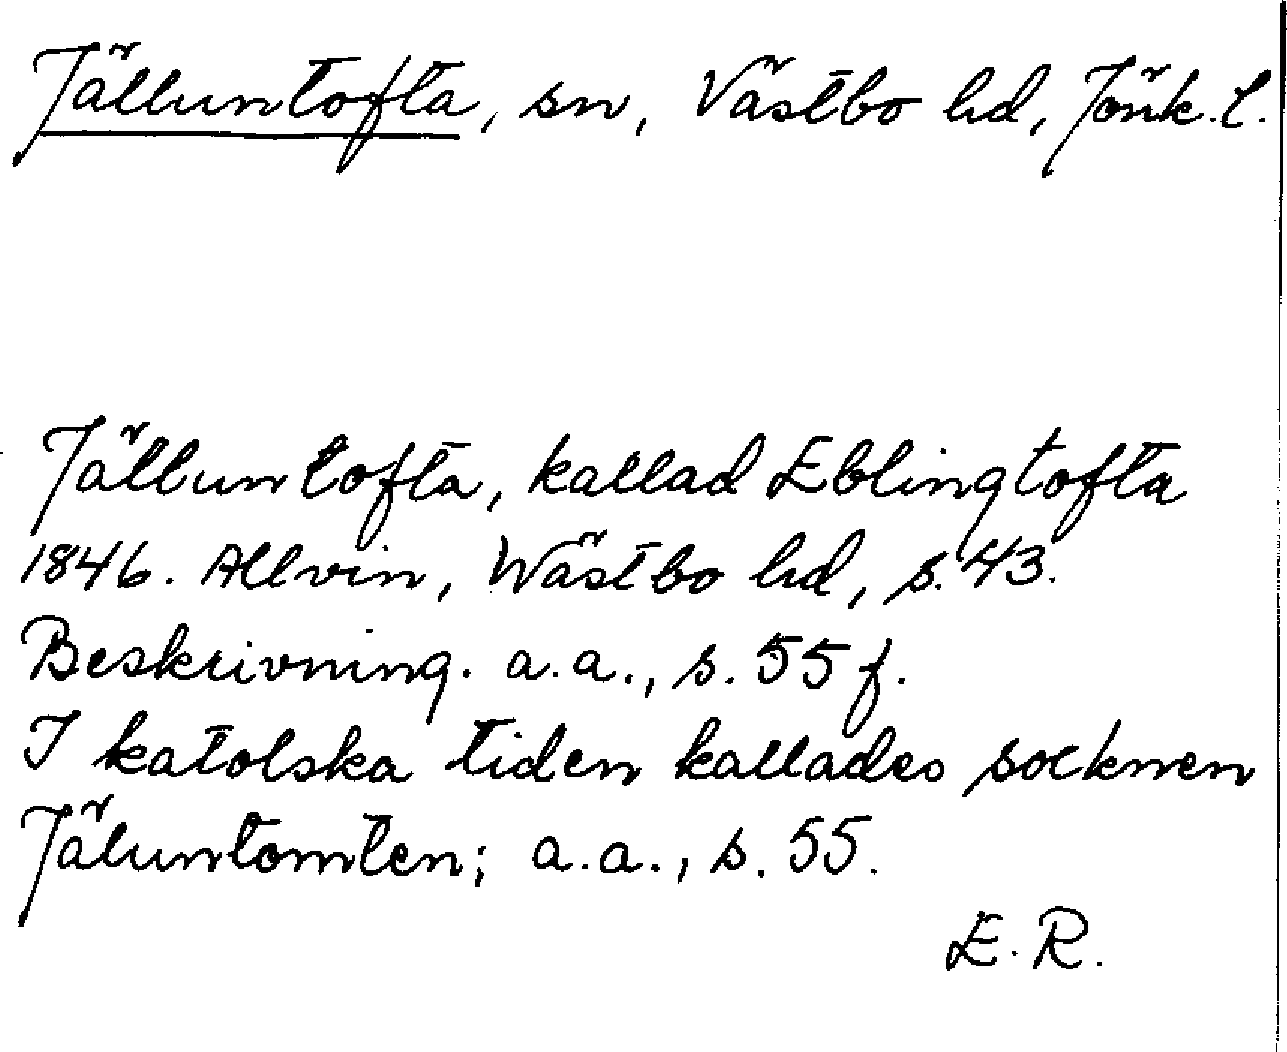 Jälluntofta, sn, Västbo hd, Jönk. l.
Jälluntofta, kallad Eblingtofta
1846. Allvin, Wästbo hd, s. 43.
Beskrivning. a.a., s. 55 f.
I katolska tiden kallades socknen
Jäluntomten; a.a., s. 55.
E. R.